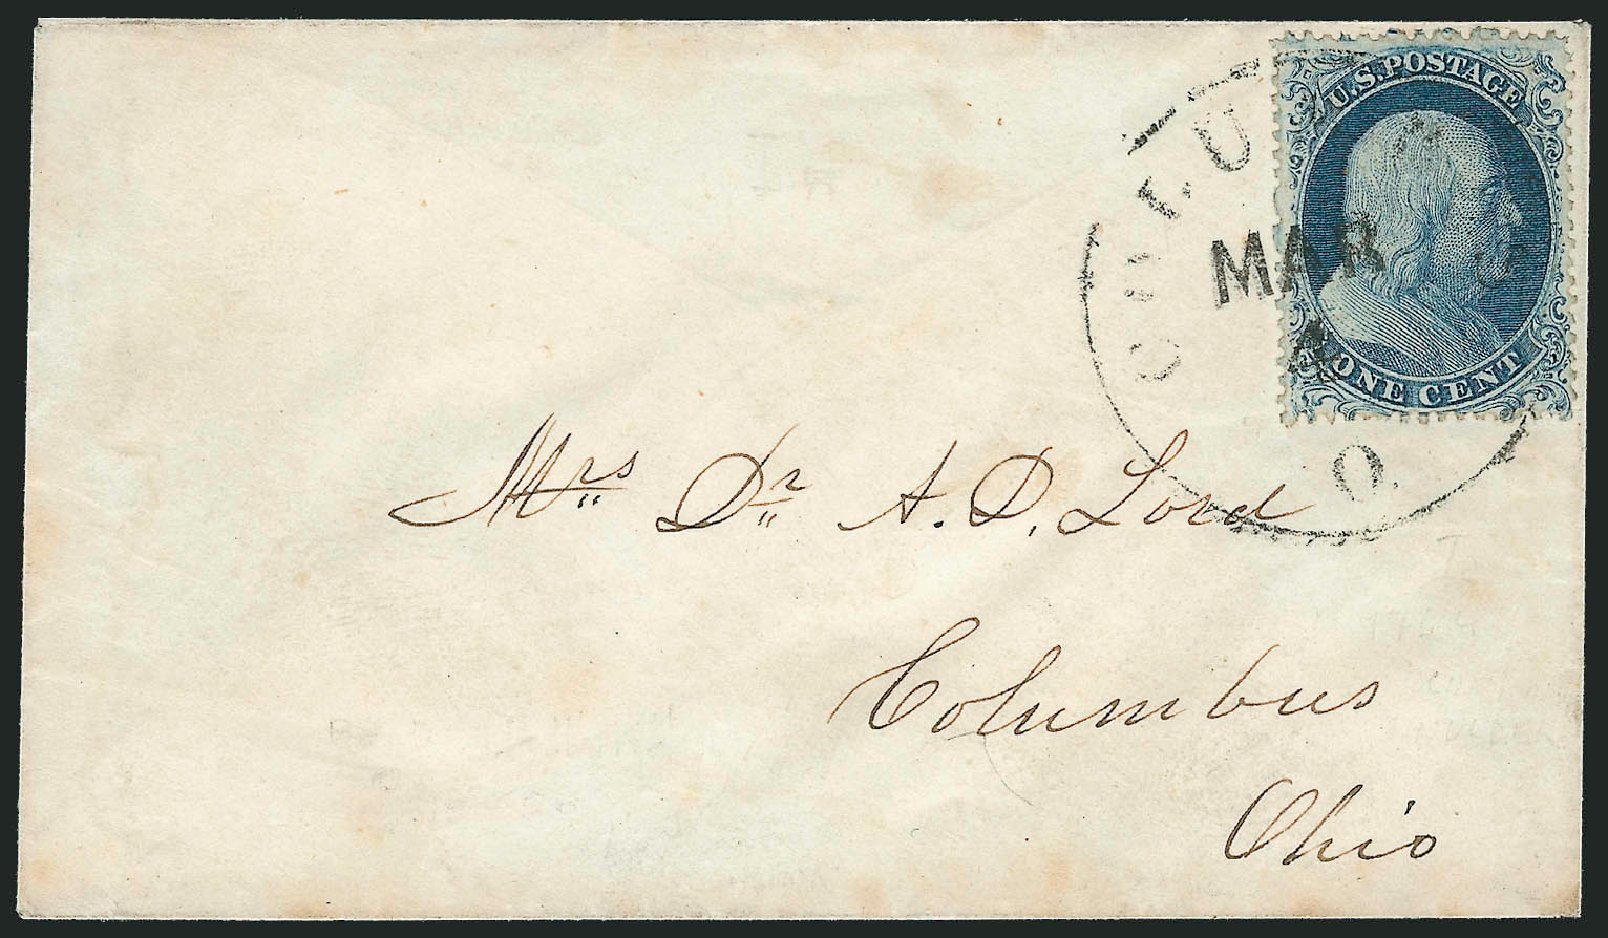 U.S. POSTAGE
ONE CENT
COLUMBUS
MAR
4
O.
Mrs Dr A. D. Lord
Columbus
Ohio